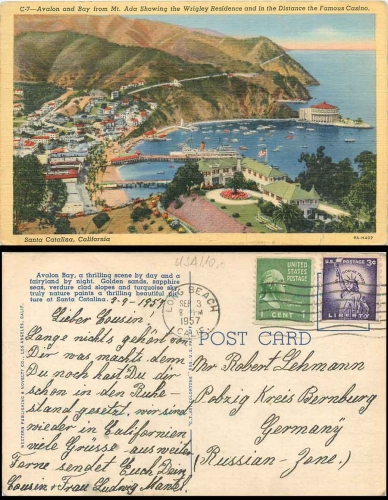 C-7—Avalon and Bay from Mt. Ada Showing the Wrigley Residence and in the Distance the Famous Casino,
Santa Catalina, California
Avalon Bay, a thrilling scene by day and a
fairyland by night. Golden sands, sapphire
seas, verdure clad slopes and turquoise sky,
truly nature paints a thrilling beautiful pic-
ture at Santa Catalina.
USA
LONG BEACH
SEP 3
1957
CALIF.
UNITED STATES
POSTAGE
1 CENT
U.S. POSTAGE 3¢
LIBERTY
POST CARD
WESTERN PUBLISHING & NOVELTY CO., LOS ANGELES, CALIF.
Lieber Cousin,
Lange nichts gehört von
Dir was macht denn
Du noch hast Du dir
schon in den Ruhe-
stand gesetzt, wir sind
wieder in Californien
viele Grüsse aus weiter
Ferne sendet Euch Dein
Cousin + Frau Ludwig
Mr Robert Lehmann
Pobzig Kreis Bernburg
Germany
(Russian-Zone.)